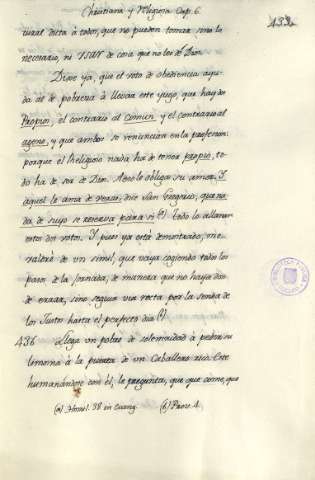 Christiana y Religiosa Cap. 6.
433.
tural dicta à todos, que no pueden tomar sino lo
necesario, ni usar de cosa que no les dè Dios.
Dixe ya, que el voto de obediencia ayu-
da al de pobreza à llevar este yugo, que hay dos
Propios, el contrario al comun, y el contrario al
ageno, y que ambos se renuncian en la profesion:
porque el Religioso nada ha de tener propio, to-
do ha de ser de Dios. A eso le obliga su amor. Y
aquel la ama de veras, dice San Gregorio, que na-
da de suyo se reserva para sì (a) todo lo allanan
estos dos votos. Y pues ya està demostrado, me
valdrè de un simil, que vaya cogiendo todos los
pasos de la jornada, de manera que no haya don-
de errar, sino seguir via recta por la senda de
los Justos hasta el perfecto dia (b)
436 Llega un pobre de solemnidad à pedir su
limosna à la puerta de un Caballero rico. Este
humanandose con èl, le pregunta, que que come, que
(a) Homil. 38 in Evang. (b) Prov. 4.